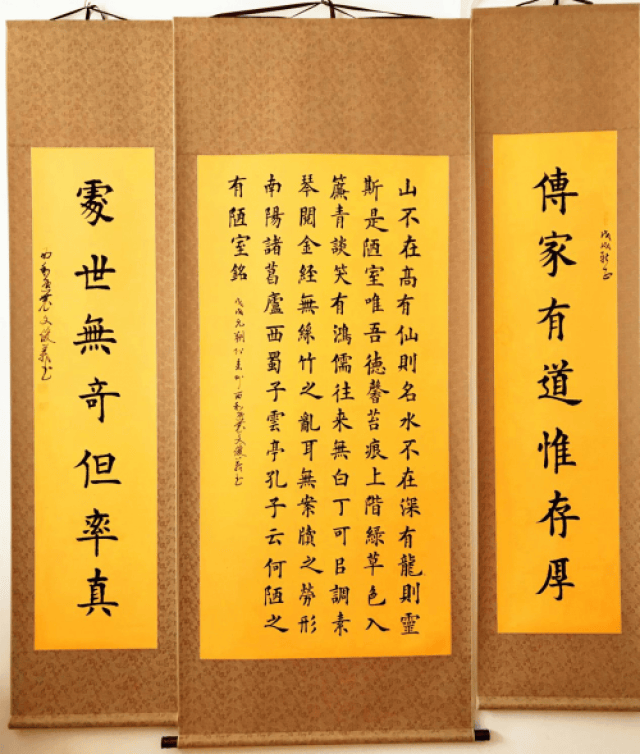 傳家有道惟存厚
戊戌新正
山不在高有仙則名水不在深有龍則靈
斯是陋室唯吾德馨苔痕上階綠草色入
簾青談笑有鴻儒往來無白丁可㠯調素
琴閱金經無絲竹之亂耳無案牘之勞形
南陽諸葛廬西蜀子雲亭孔子云何陋之
有陋室銘
戊戌元朔
處世無奇但率真